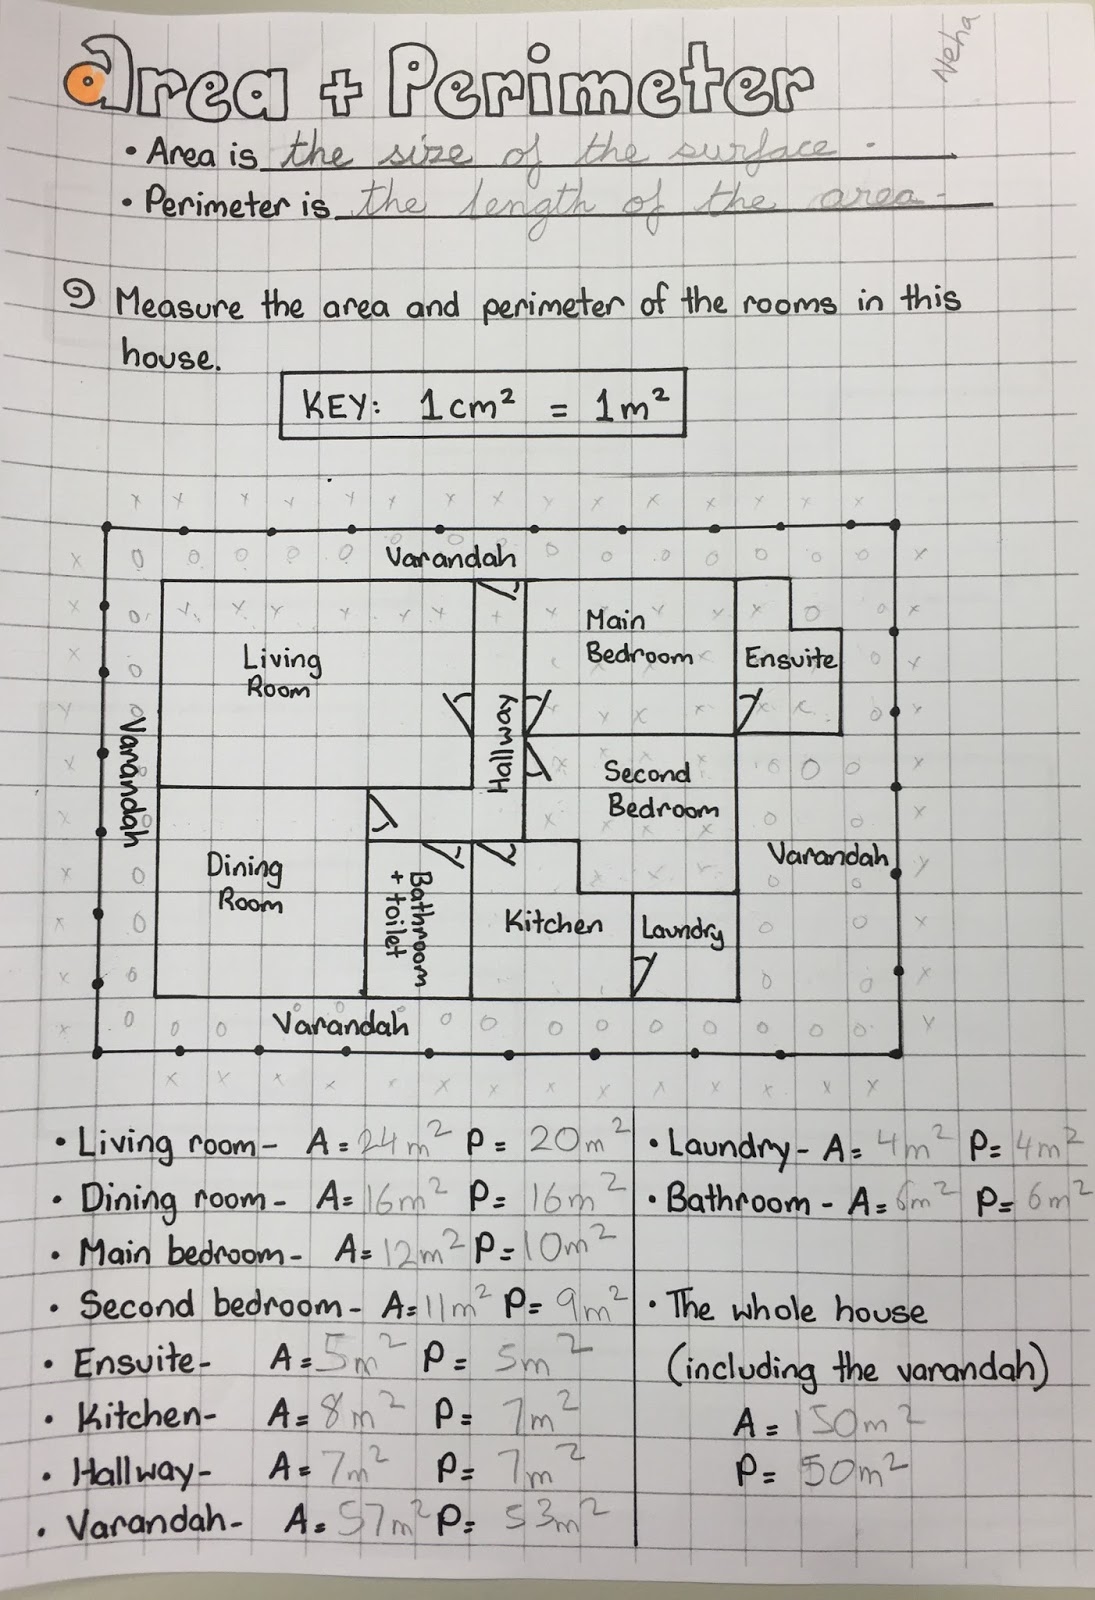 Neha
Area + Perimeter
• Area is the size of the surface.
• Perimeter is the length of the area.
Measure the area and perimeter of the rooms in this
house.
KEY: 1cm² = 1m²
Varandah
Living
Room
Hallway
Main
Bedroom
Ensuite
Varandah
Second
Bedroom
Dining
Room
Bathroom
+ toilet
Kitchen
Laundry
Varandah
Varandah
• Living room- A= 24m² P= 20m²
• Dining room- A= 16m² P= 16m²
• Main bedroom- A= 12m² P= 10m²
• Second bedroom- A= 11m² P= 9m²
• Ensuite- A= 5m² P= 5m²
• Kitchen- A= 8m² P= 7m²
• Hallway- A= 7m² P= 7m²
• Varandah- A= 57m² P= 53m²
• Laundry- A= 4m² P= 4m²
• Bathroom- A= 6m² P= 6m²
• The whole house
(including the varandah)
A= 150m²
P= 50m²